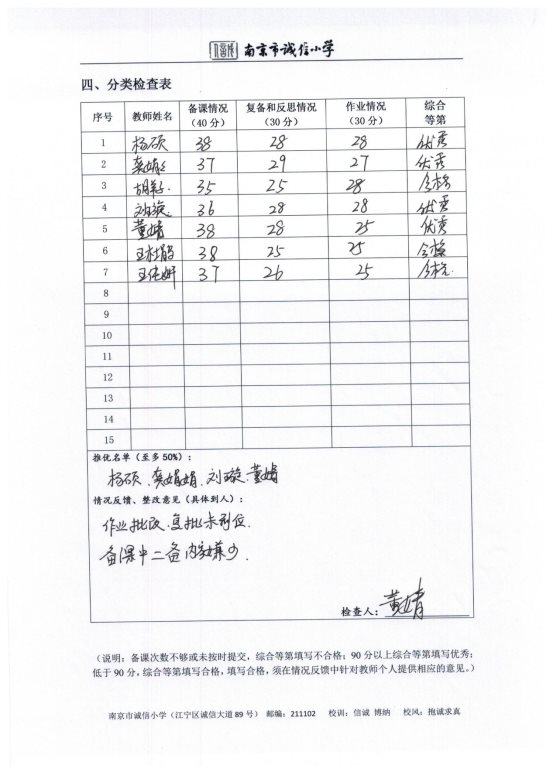 南京市诚信小学
四、分类检查表
序号 教师姓名 备课情况（40分） 复备和反思情况（30分） 作业情况（30分） 综合等第
1 杨硕 38 28 28 优秀
2 龚娟娟 37 29 27 优秀
3 35 25 28 合格
4 刘璇 36 28 28 优秀
5 董婧 38 28 25 优秀
6 38 25 25 合格
7 37 26 25 合格
8
9
10
11
12
13
14
15
推优名单（至多50%）：
杨硕、龚娟娟、刘璇、董婧
情况反馈、整改意见（具体到人）：
作业批改、复批未到位.
备课中二备内容嫌少.
检查人：董婧
（说明：备课次数不够或未按时提交，综合等第填写不合格；90分以上综合等第填写优秀；
低于90分，综合等第填写合格，填写合格，须在情况反馈中针对教师个人提供相应的意见。）
南京市诚信小学（江宁区诚信大道89号） 邮编：211102 校训：信诚 博纳 校风：抱诚求真